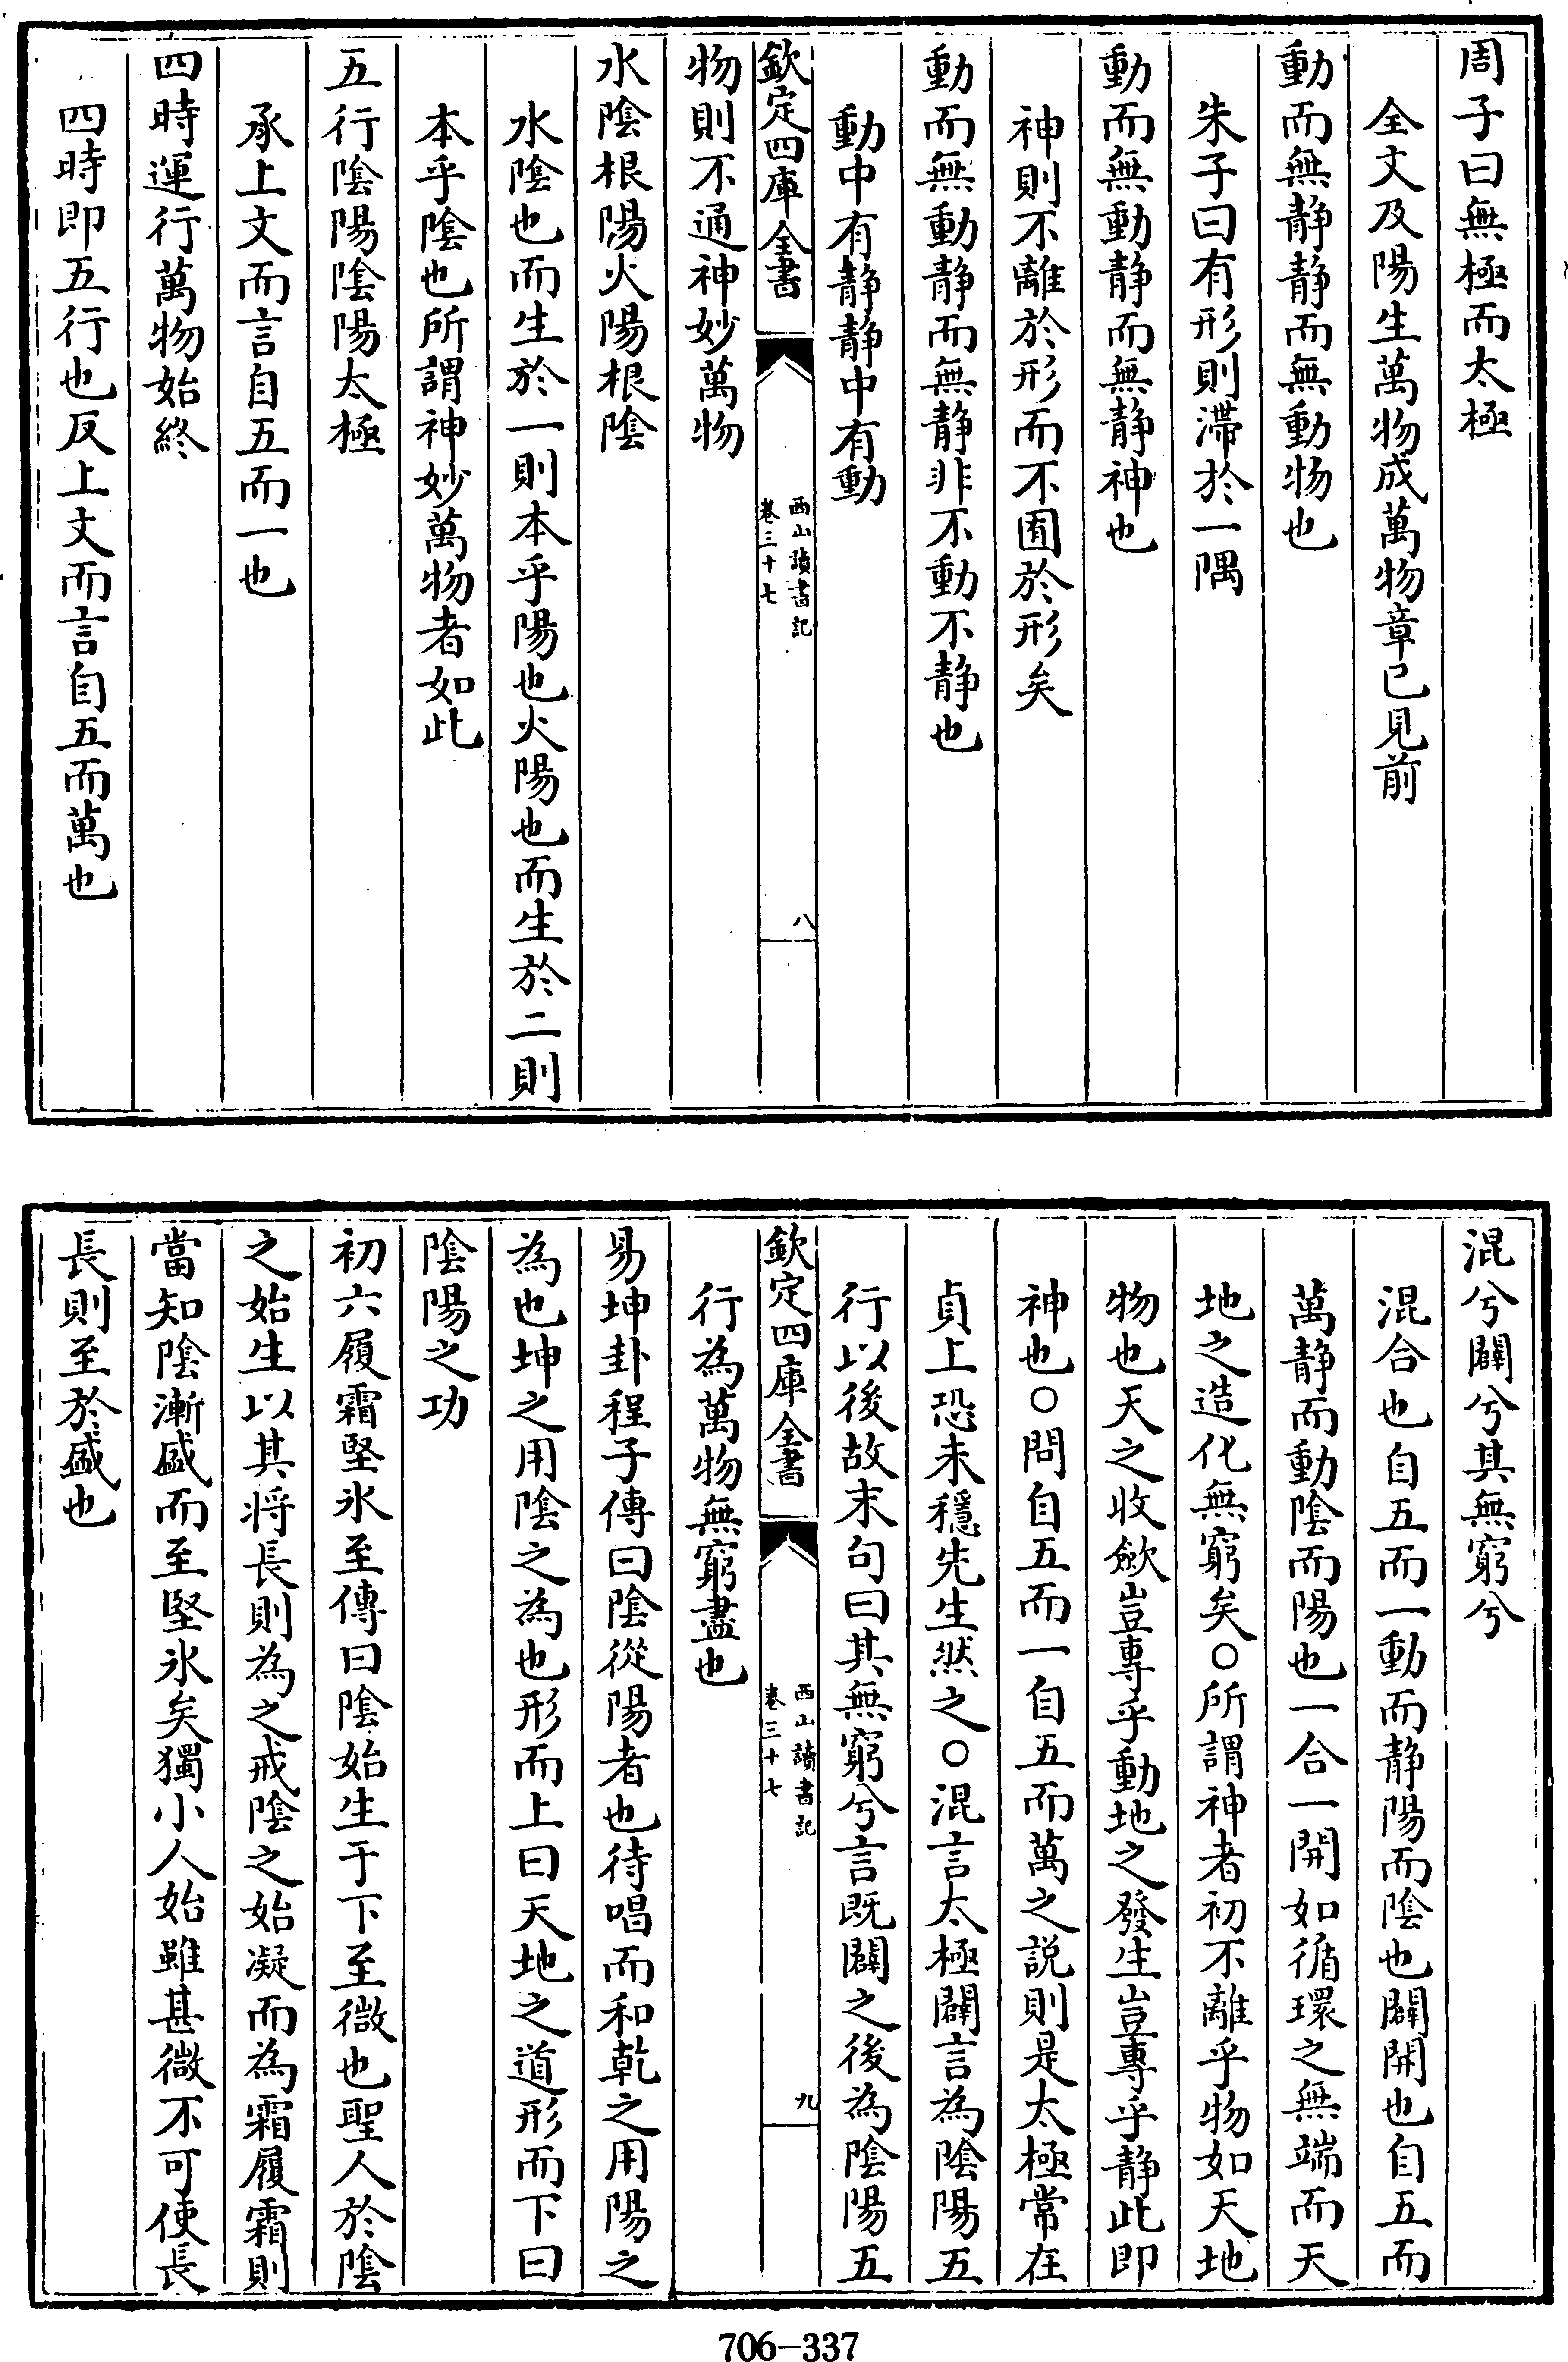 周子曰無極而太極
全文及陽生萬物成萬物章已見前
動而無静静而無動物也
朱子曰有形則滯於一隅
動而無動静而無静神也
神則不離於形而不囿於形矣
動而無動静而無静非不動不静也
動中有静静中有動
欽定四庫全書
西山讀書記
卷三十七
八
物則不通神妙萬物
水陰根陽火陽根陰
水陰也而生於一則本乎陽也火陽也而生於二則
本乎陰也所謂神妙萬物者如此
五行陰陽陰陽太極
承上文而言自五而一也
四時運行萬物始終
四時即五行也反上文而言自五而萬也
混兮闢兮其無窮兮
混合也自五而一動而静陽而陰也闢開也自五而
萬静而動陰而陽也一合一開如循環之無端而天
地之造化無窮矣○所謂神者初不離乎物如天地
物也天之收斂豈專乎動地之發生豈專乎静此即
神也○問自五而一自五而萬之説則是太極常在
貞上恐未穩先生然之○混言太極闢言為陰陽五
行以後故末句曰其無窮兮言既闢之後為陰陽五
欽定四庫全書
西山讀書記
卷三十七
九
行為萬物無窮盡也
易坤卦程子傳曰陰從陽者也待唱而和乾之用陽之
為也坤之用陰之為也形而上曰天地之道形而下曰
陰陽之功
初六履霜堅氷至傳曰陰始生于下至微也聖人於陰
之始生以其将長則為之戒陰之始凝而為霜履霜則
當知陰漸盛而至堅氷矣獨小人始雖甚微不可使長
長則至於盛也
706-337